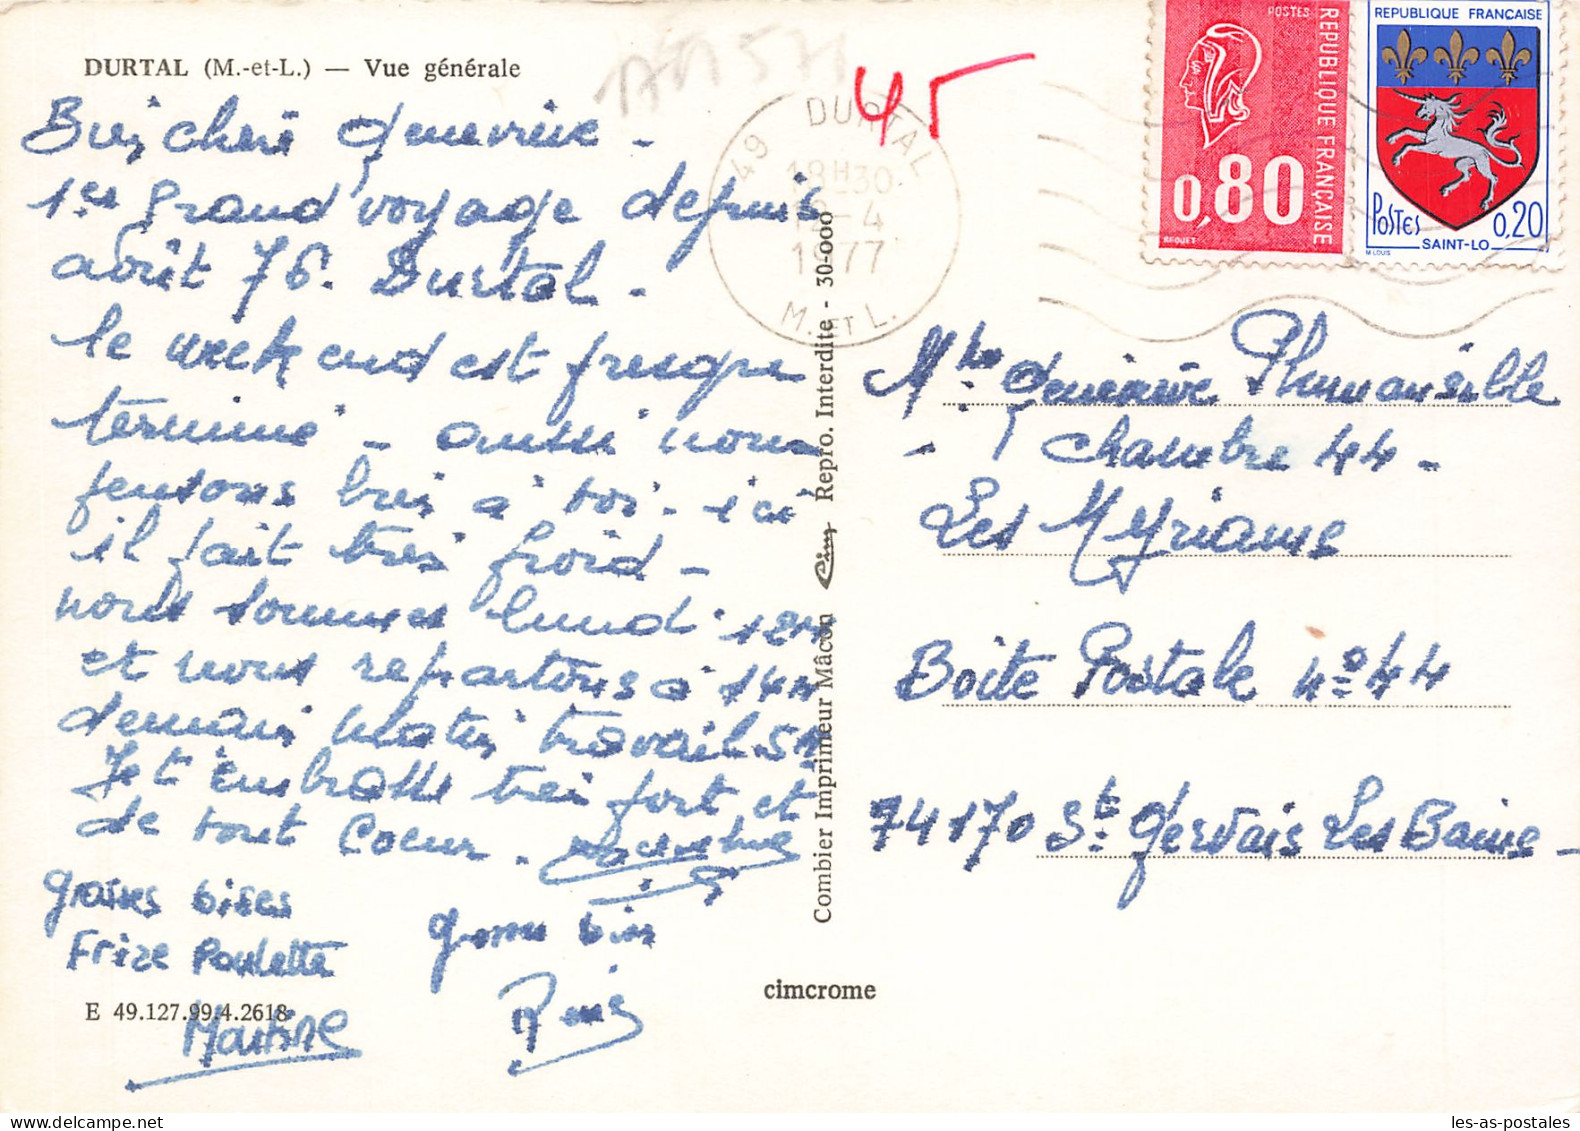 DURTAL (M.-et-L.) — Vue générale
45
49 DURTAL
18H30
12-4
1977
M. ET L.
POSTES
REPUBLIQUE FRANÇAISE
0,80
BEQUET
REPUBLIQUE FRANÇAISE
POSTES 0,20
SAINT-LO
M LOUIS
chère Geneviève -
1er grand voyage depuis
août 76. Durtal -
le week end est presque
terminé - aussi nous
pensons bien à toi - ici
il fait très froid -
nous sommes lundi 12h
et nous repartons à 14h
demain matin travail 5h
Je t'embrasse très fort et
de tout coeur.
grosses bises
Frize Poulette
Martine
grosses bises
Combier Imprimeur Mâcon Cim Repro. Interdite - 30-000
cimcrome
E 49.127.99.4.2618
Geneviève
Chambre 44 -
Les Myriams
Boîte Postale n° 44
74170 St. Gervais Les Bains -
les-as-postales